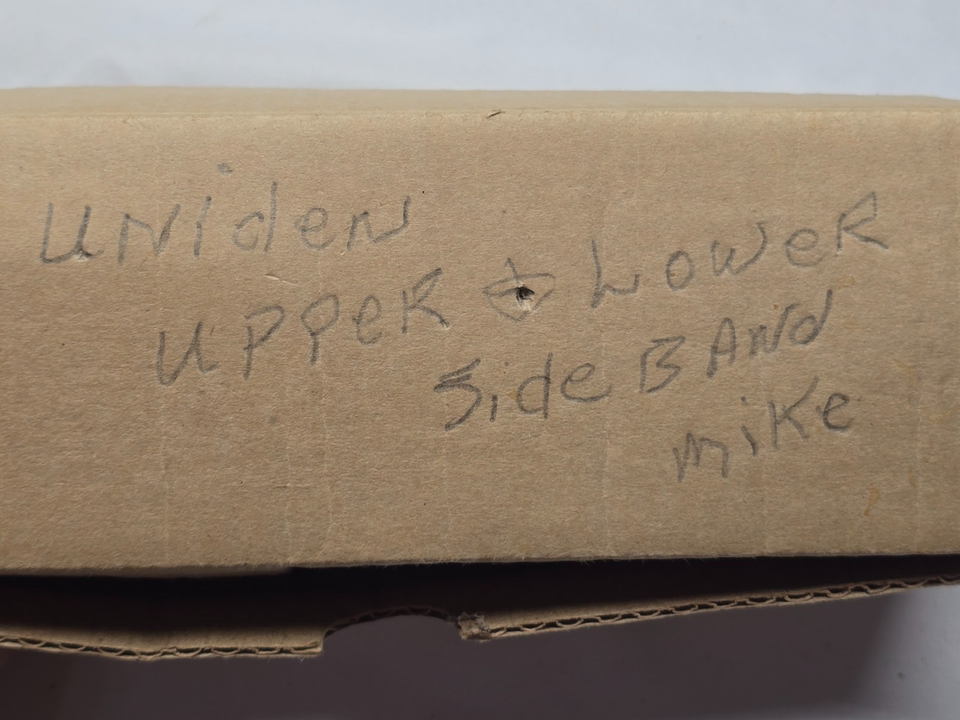 uNideN
uPPeR & LoweR
Side BANd
mike